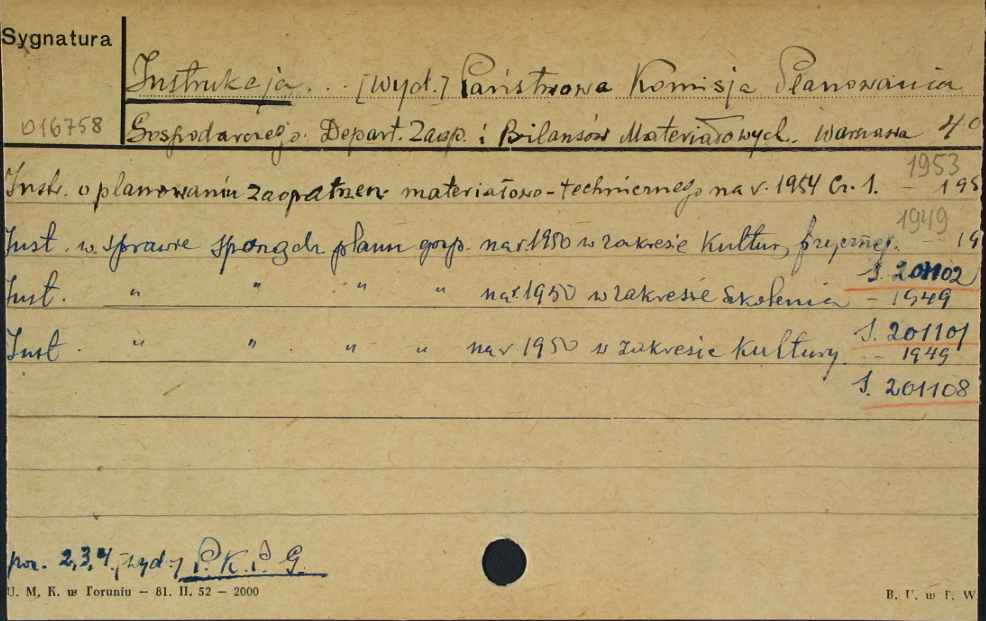 Sygnatura
Instrukcja... [wyd.] Państwowa Komisja Planowania
016758
Gospodarczego. Depart. Zaop. i Bilansów Materiałowych. Warszawa 4°
1953
Instr. o planowaniu zaopatrzen. materiałowo-technicznego na r. 1954 Cz. 1. - 195
1949
Inst. w sprawie sporządz. planu gosp. na r. 1950 w zakresie Kultury fizycznej. - 19
S. 201102
Inst. " " " " na r. 1950 w zakresie Szkolenia - 1949
S. 201101
Inst. " " " " na r 1950 w zakresie Kultury. - 1949
S. 201108
por. 2,3,4. [wyd.] P. K. P. G.
U. M. K. w Toruniu — 81. II. 52 — 2000
B. U. w T. W